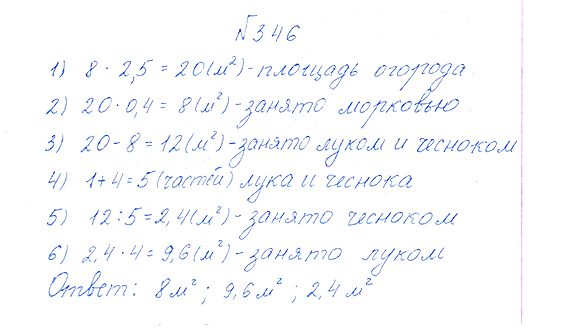 №346
1) 8 · 2,5 = 20 (м²) - площадь огорода
2) 20 · 0,4 = 8 (м²) - занято морковью
3) 20 - 8 = 12 (м²) - занято луком и чесноком
4) 1 + 4 = 5 (частей) лука и чеснока
5) 12 : 5 = 2,4 (м²) - занято чесноком
6) 2,4 · 4 = 9,6 (м²) - занято луком
Ответ: 8 м² ; 9,6 м² ; 2,4 м²